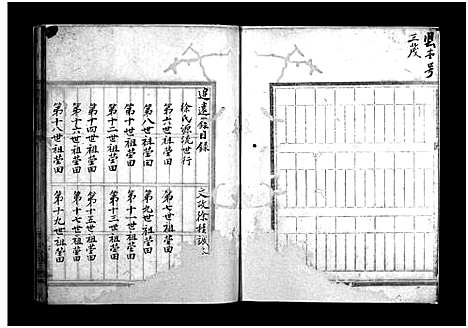 三茂
追遠錄目錄
文政徐桂誠
徐氏源流世行
第六世祖塋田
第七世祖塋田
第八世祖塋田
第九世祖塋田
第十世祖塋田
第十一世祖塋田
第十二世祖塋田
第十三世祖塋田
第十四世祖塋田
第十五世祖塋田
第十六世祖塋田
第十七世祖塋田
第十八世祖塋田
第十九世祖塋田